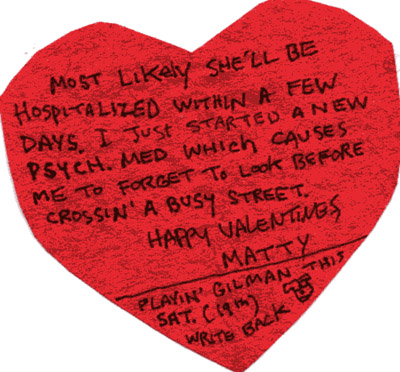 MOST LIKELY SHE'LL BE
HOSPITALIZED WITHIN A FEW
DAYS. I JUST STARTED A NEW
PSYCH. MED WHICH CAUSES
ME TO FORGET TO LOOK BEFORE
CROSSIN' A BUSY STREET.
HAPPY VALENTINES
MATTY
PLAYIN' GILMAN THIS
SAT. (19TH)
WRITE BACK